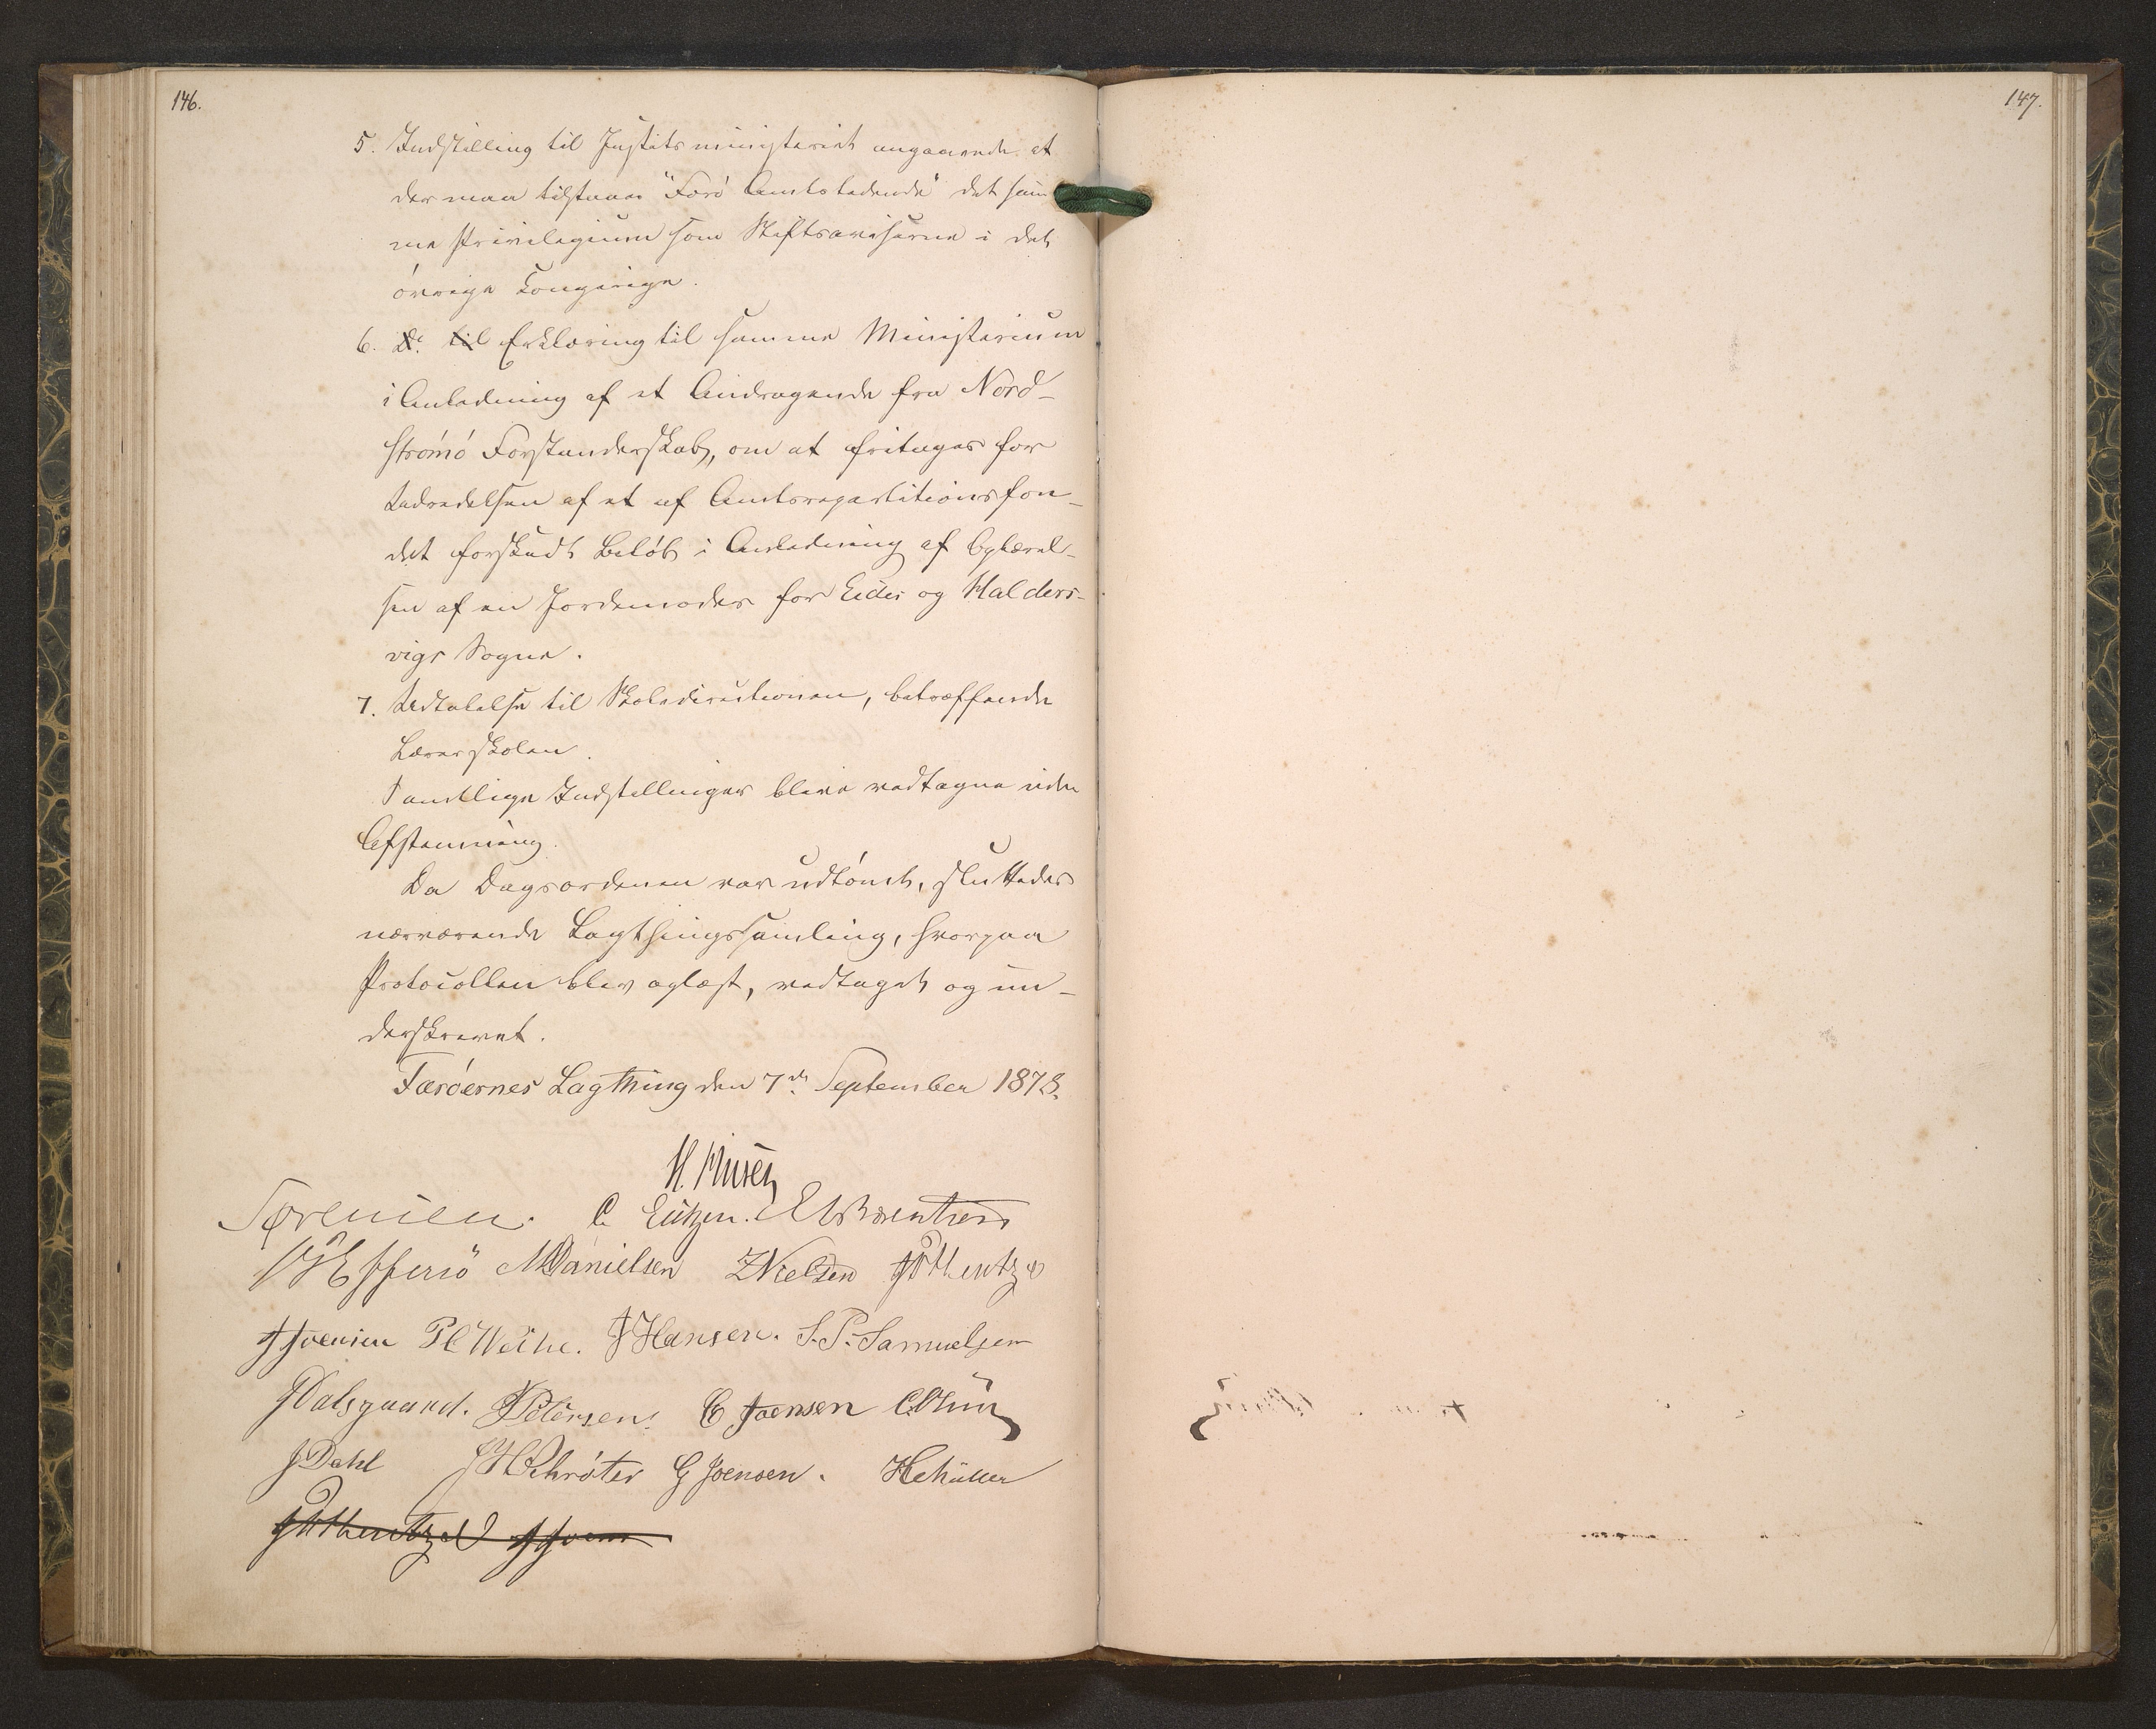 146.
5. Indstilling til Justitsministeriet angaaende at
der maa tilstaaes "Færø Amtstidende" det sam
me Privilegium som Stiftsaviserne i det
övrige Kongerige.
6. Do til Erklæring til samme Ministerium
i Anledning af et Andragende fra Nord-
strömö Forstanderskab, om at fritages for
Udredelsen af et af Amtsrepartitionsfon-
det forskudt Beløb i Anledning af Oplærel-
sen af en Jordemoder for Eides og Halders-
vigs Sogne.
7. Udtalelse til Skoledirectionen, betræffende
Lærerskolen.
Samtlige Indstillinger bleve vedtagne uden
Afstemning.
Da Dagsordenen var udtömt, sluttedes
nærværende Lagthingssamling, hvorpaa
Protocollen blev oplæst, vedtaget og un-
derskrevet.
Færöernes Lagthing den 7de September 1878.
H. Finsen
Sørensen. C. Lützen. E Bærentsen
Effersö MDanielsen ZNielsen
JJoensen Pl Weihe. JHansen. S.P. Samuelsen
JDalsgaard. Petersen. E Joensen
JDahl JHSchröter G Joensen. HCMüller
147.